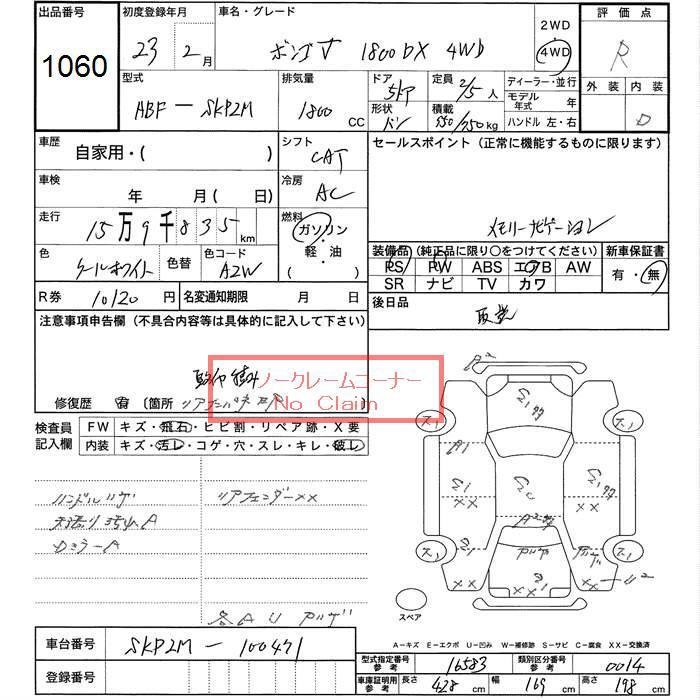 出品番号 1060
初度登録年月 23 2月
車名・グレード ボンゴV 1800DX 4WD
2WD・4WD
評価点 R
外装 内装 D
型式 ABF-SKP2M
排気量 1800 CC
ドア 5ドア
形状 バン
定員 2/5人
積載 550/750kg
ディーラー・並行
モデル年式 年
ハンドル 左・右
車歴 自家用・( )
シフト CAT
セールスポイント(正常に機能するものに限ります)
車検 年 月(日)
冷房 AC
メモリーナビゲーション
走行 15万9千835km
燃料 ガソリン・軽油( )
装備品(純正品に限り〇をつけてください)
新車保証書 有・無
PS PW ABS エアB AW
SR ナビ TV カワ
色 クールホワイト 色替 色コード A2W
R券 10120円 名変通知期限 月 日
後日品 取説
注意事項申告欄(不具合内容等は具体的に記入して下さい)
ノークレームコーナー
No Claim
修復歴 有 〔箇所
検査員記入欄
FW キズ・飛石・ヒビ割・リペア跡・X要
内装 キズ・汚レ・コゲ・穴・スレ・キレ・破レ
ハンドルスレ
リアフェンダーXX
天張り汚れA
DミラーA
各AU
スペア
車台番号 SKP2M-100471
登録番号
A-キズ E-エクボ U-凹み W-補修跡 S-サビ C-腐食 XX-交換済
型式指定番号参考 16583 類別区分番号参考 0014
車庫証明用参考 長さ 428cm 幅 169cm 高さ 198cm